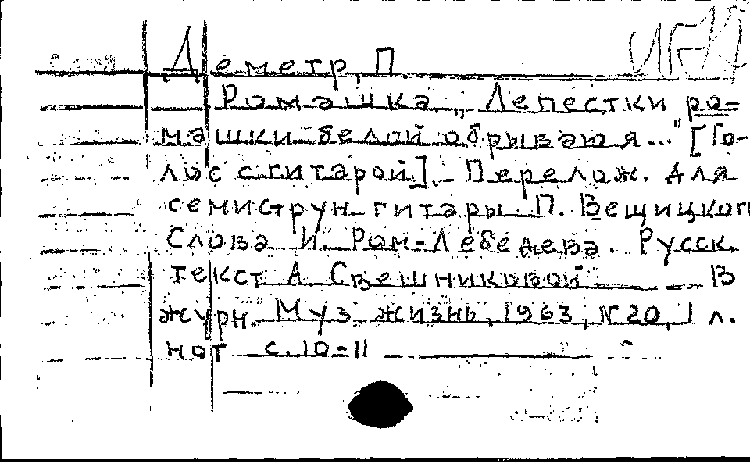 Деметр, П.
Ромашка „Лепестки ро-
машки белой обрываю я..." [Го-
лос с гитарой]. Перелож. для
семиструн. гитары П. Вещицкого
Слова И. Ром-Лебедева. Русск.
текст А. Свешниковой В
журн. Муз. жизнь, 1963, N 20, 1 л.
нот с. 10-11